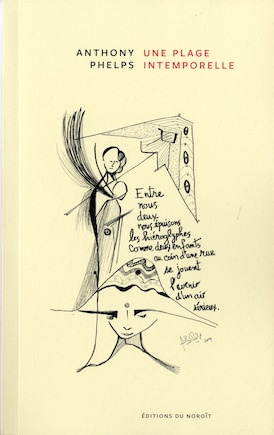 ANTHONY PHELPS
UNE PLAGE INTEMPORELLE
Entre
nous
deux
nous épuisons
les hiéroglyphes
Comme deux enfants
au coin d'une rue
se jouent
l'avenir
d'un air
sérieux.
ÉDITIONS DU NOROÎT